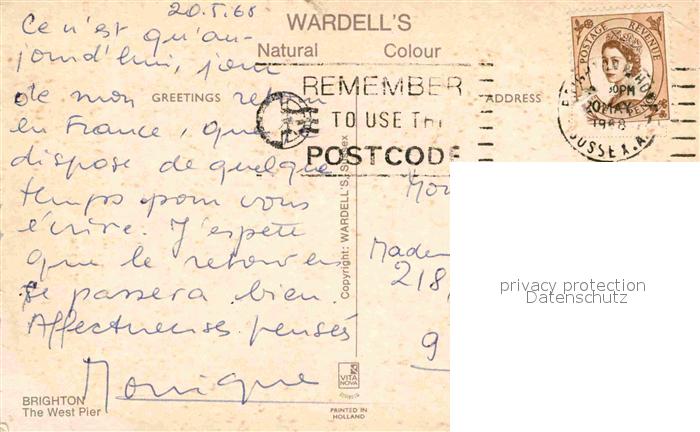 20.5.68
WARDELL'S
Natural Colour
Ce n'est qu'au-
jourd'hui, jour
de mon retour
en France, que
dispose de quelque
temps pour vous
écrire. J'espère
que le retour
se passera bien.
Affectueuses pensées
Monique
GREETINGS
ADDRESS
REMEMBER
TO USE THE
POSTCODE
POSTAGE REVENUE
PM
20 MAY
1968
SUSSEX.A
Copyright: WARDELL'S, Sussex
Madem
218,
9
privacy protection
Datenschutz
BRIGHTON
The West Pier
VITA
NOVA
PRINTED IN
HOLLAND